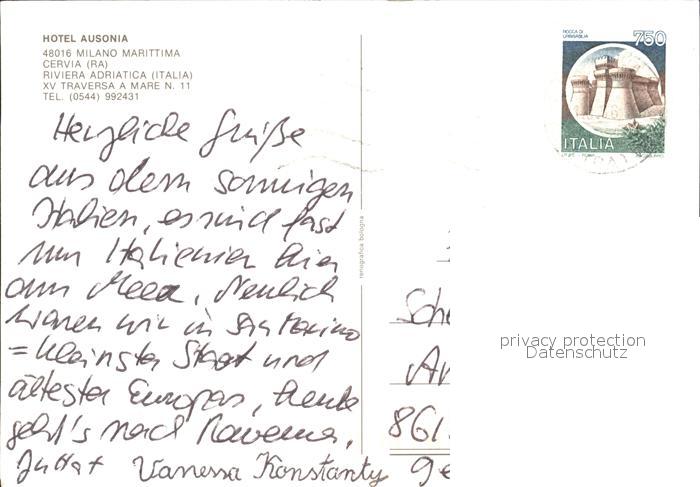 HOTEL AUSONIA
48016 MILANO MARITTIMA
CERVIA (RA)
RIVIERA ADRIATICA (ITALIA)
XV TRAVERSA A MARE N. 11
TEL. (0544) 992431
ROCCA DI URBISAGLIA
750
ITALIA
Herzliche Grüße
aus dem sonnigen
Italien, es sind fast
nur Italiener hier
am Meer, Neulich
waren wir in San Marino
= kleinster Staat und
ältester Europas, heute
geht's nach Ravenna,
Vanessa Konstanty
renografica bologna
Sche
Am
861
Ge
privacy protection
Datenschutz